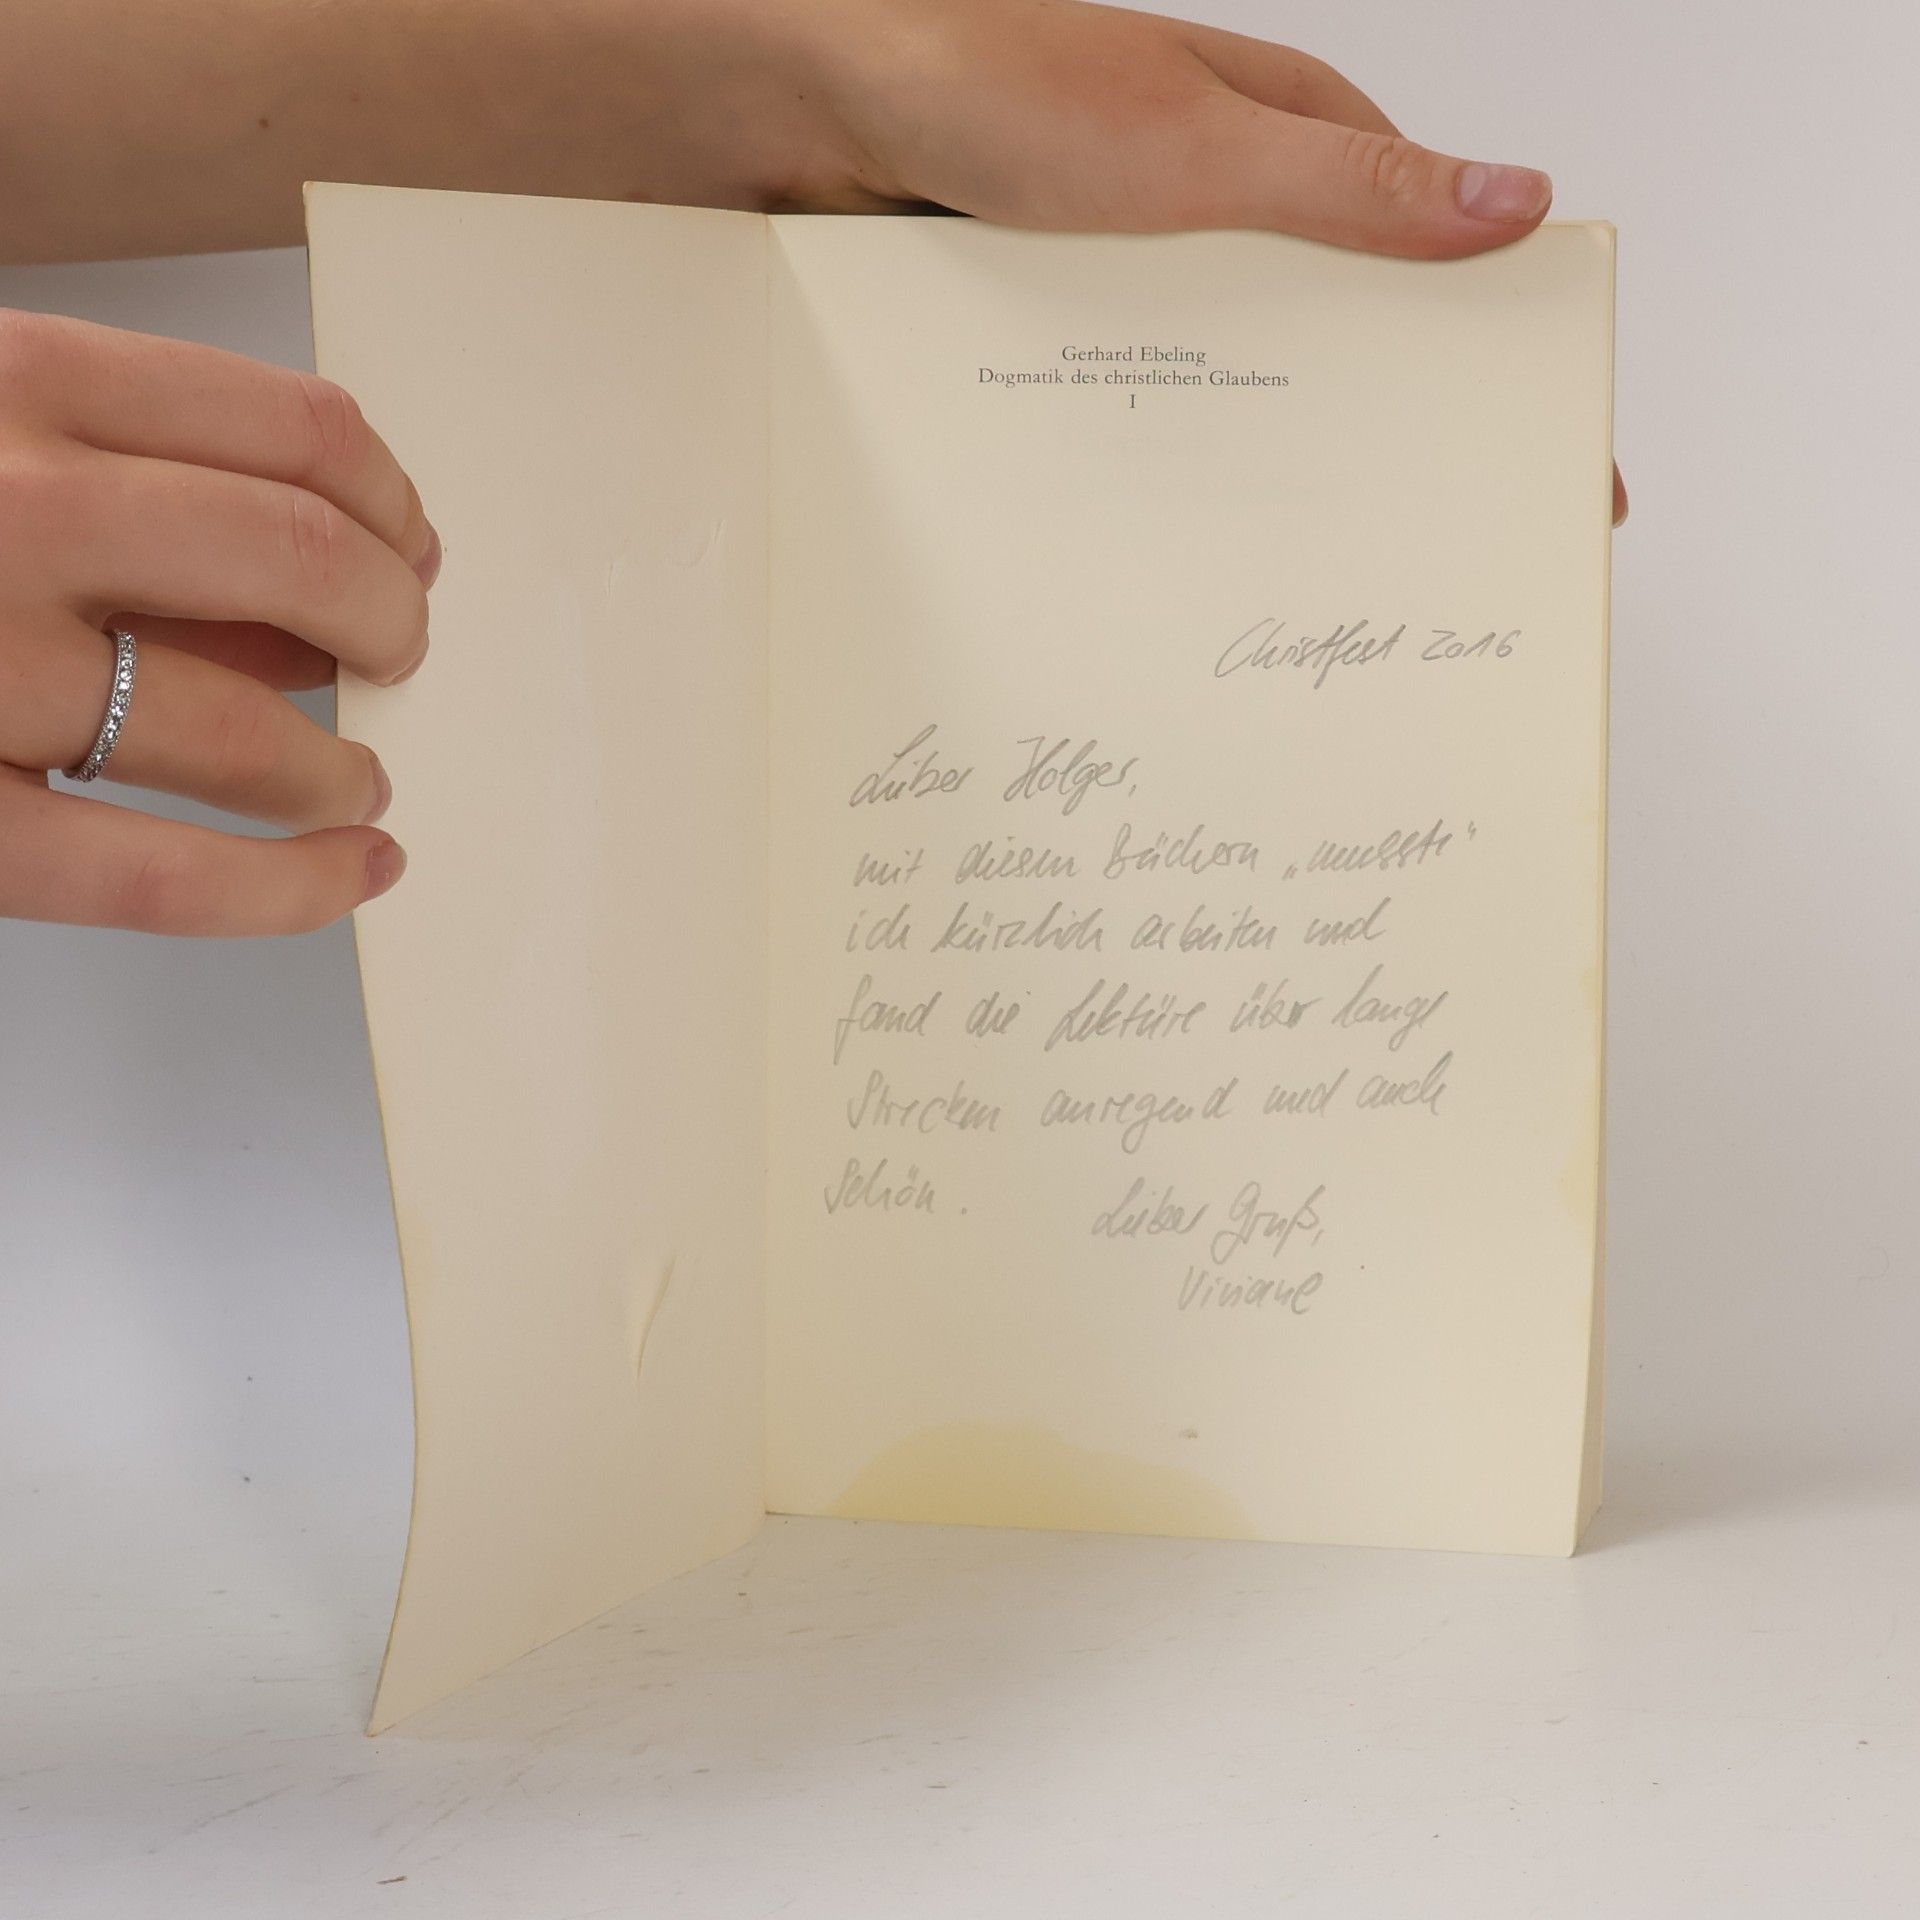 Gerhard Ebeling
Dogmatik des christlichen Glaubens
I
Christfest 2016
Lieber Holger,
mit diesen Büchern „musste“
ich kürzlich arbeiten und
fand die Lektüre über lange
Strecken anregend und auch
schön.
Lieber Gruß,
Viviane